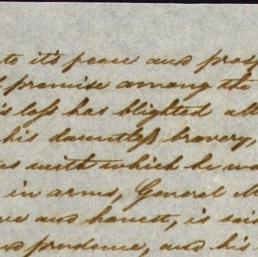 to it's peace and prosp
promise among the
is loss has blighted all
his dauntless bravery,
as with which he wa
in arms, General M
ve and honest, is sai
prudence, and his